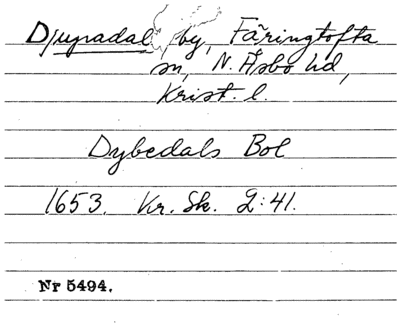 Djupadal by, Färingtofta
sn, N. Åsbo hd,
Krist. l.
Dybedals Bol
1653. Kr. Sk. 2:41.
Nr 5494.